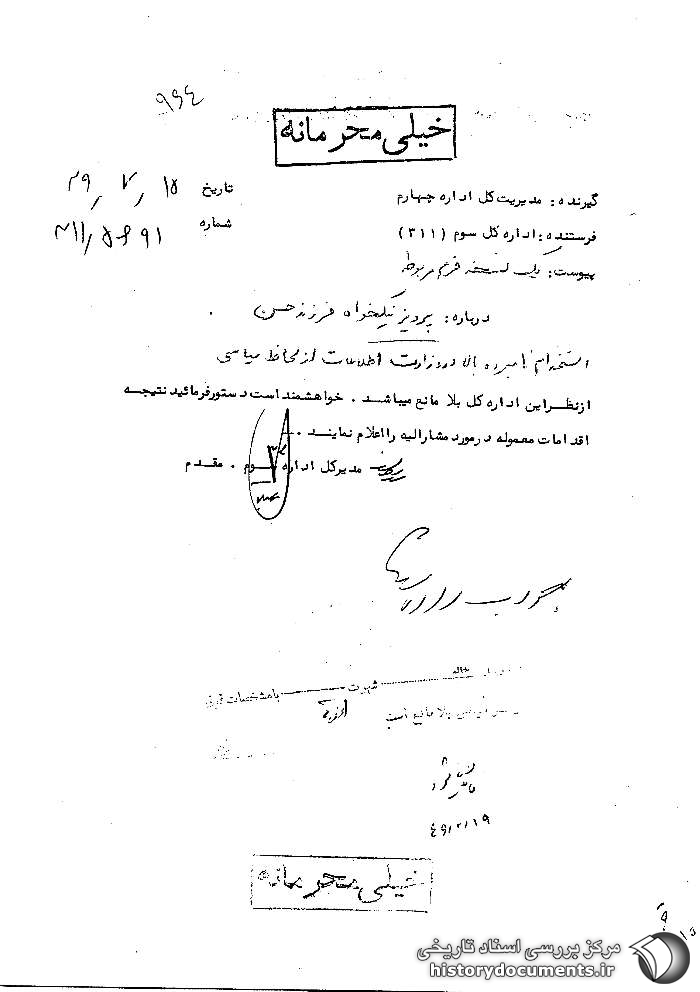 ۹۶۴
خیلی محرمانه
گیرنده: مدیریت کل اداره چهارم
تاریخ ۱۵/۲/۴۹
فرستنده: اداره کل سوم (۳۱۱)
شماره ۳۱۱/۵۶۹۱
پیوست: یک نسخه فرم مربوطه
درباره: پرویز نیکخواه فرزند حسن
استخدام نامبرده بالا در وزارت اطلاعات از لحاظ سیاسی
ازنظراین اداره کل بلا مانع میباشد. خواهشمنداست دستورفرمائید نتیجه
اقدامات معموله درمورد مشارالیه رااعلام نمایند.
مدیرکل اداره سوم. مقدم
شهرت با مشخصات فوق
بلا مانع است
۴۹/۲/۱۹
خیلی محرمانه
مرکز بررسی اسناد تاریخی
historydocuments.ir